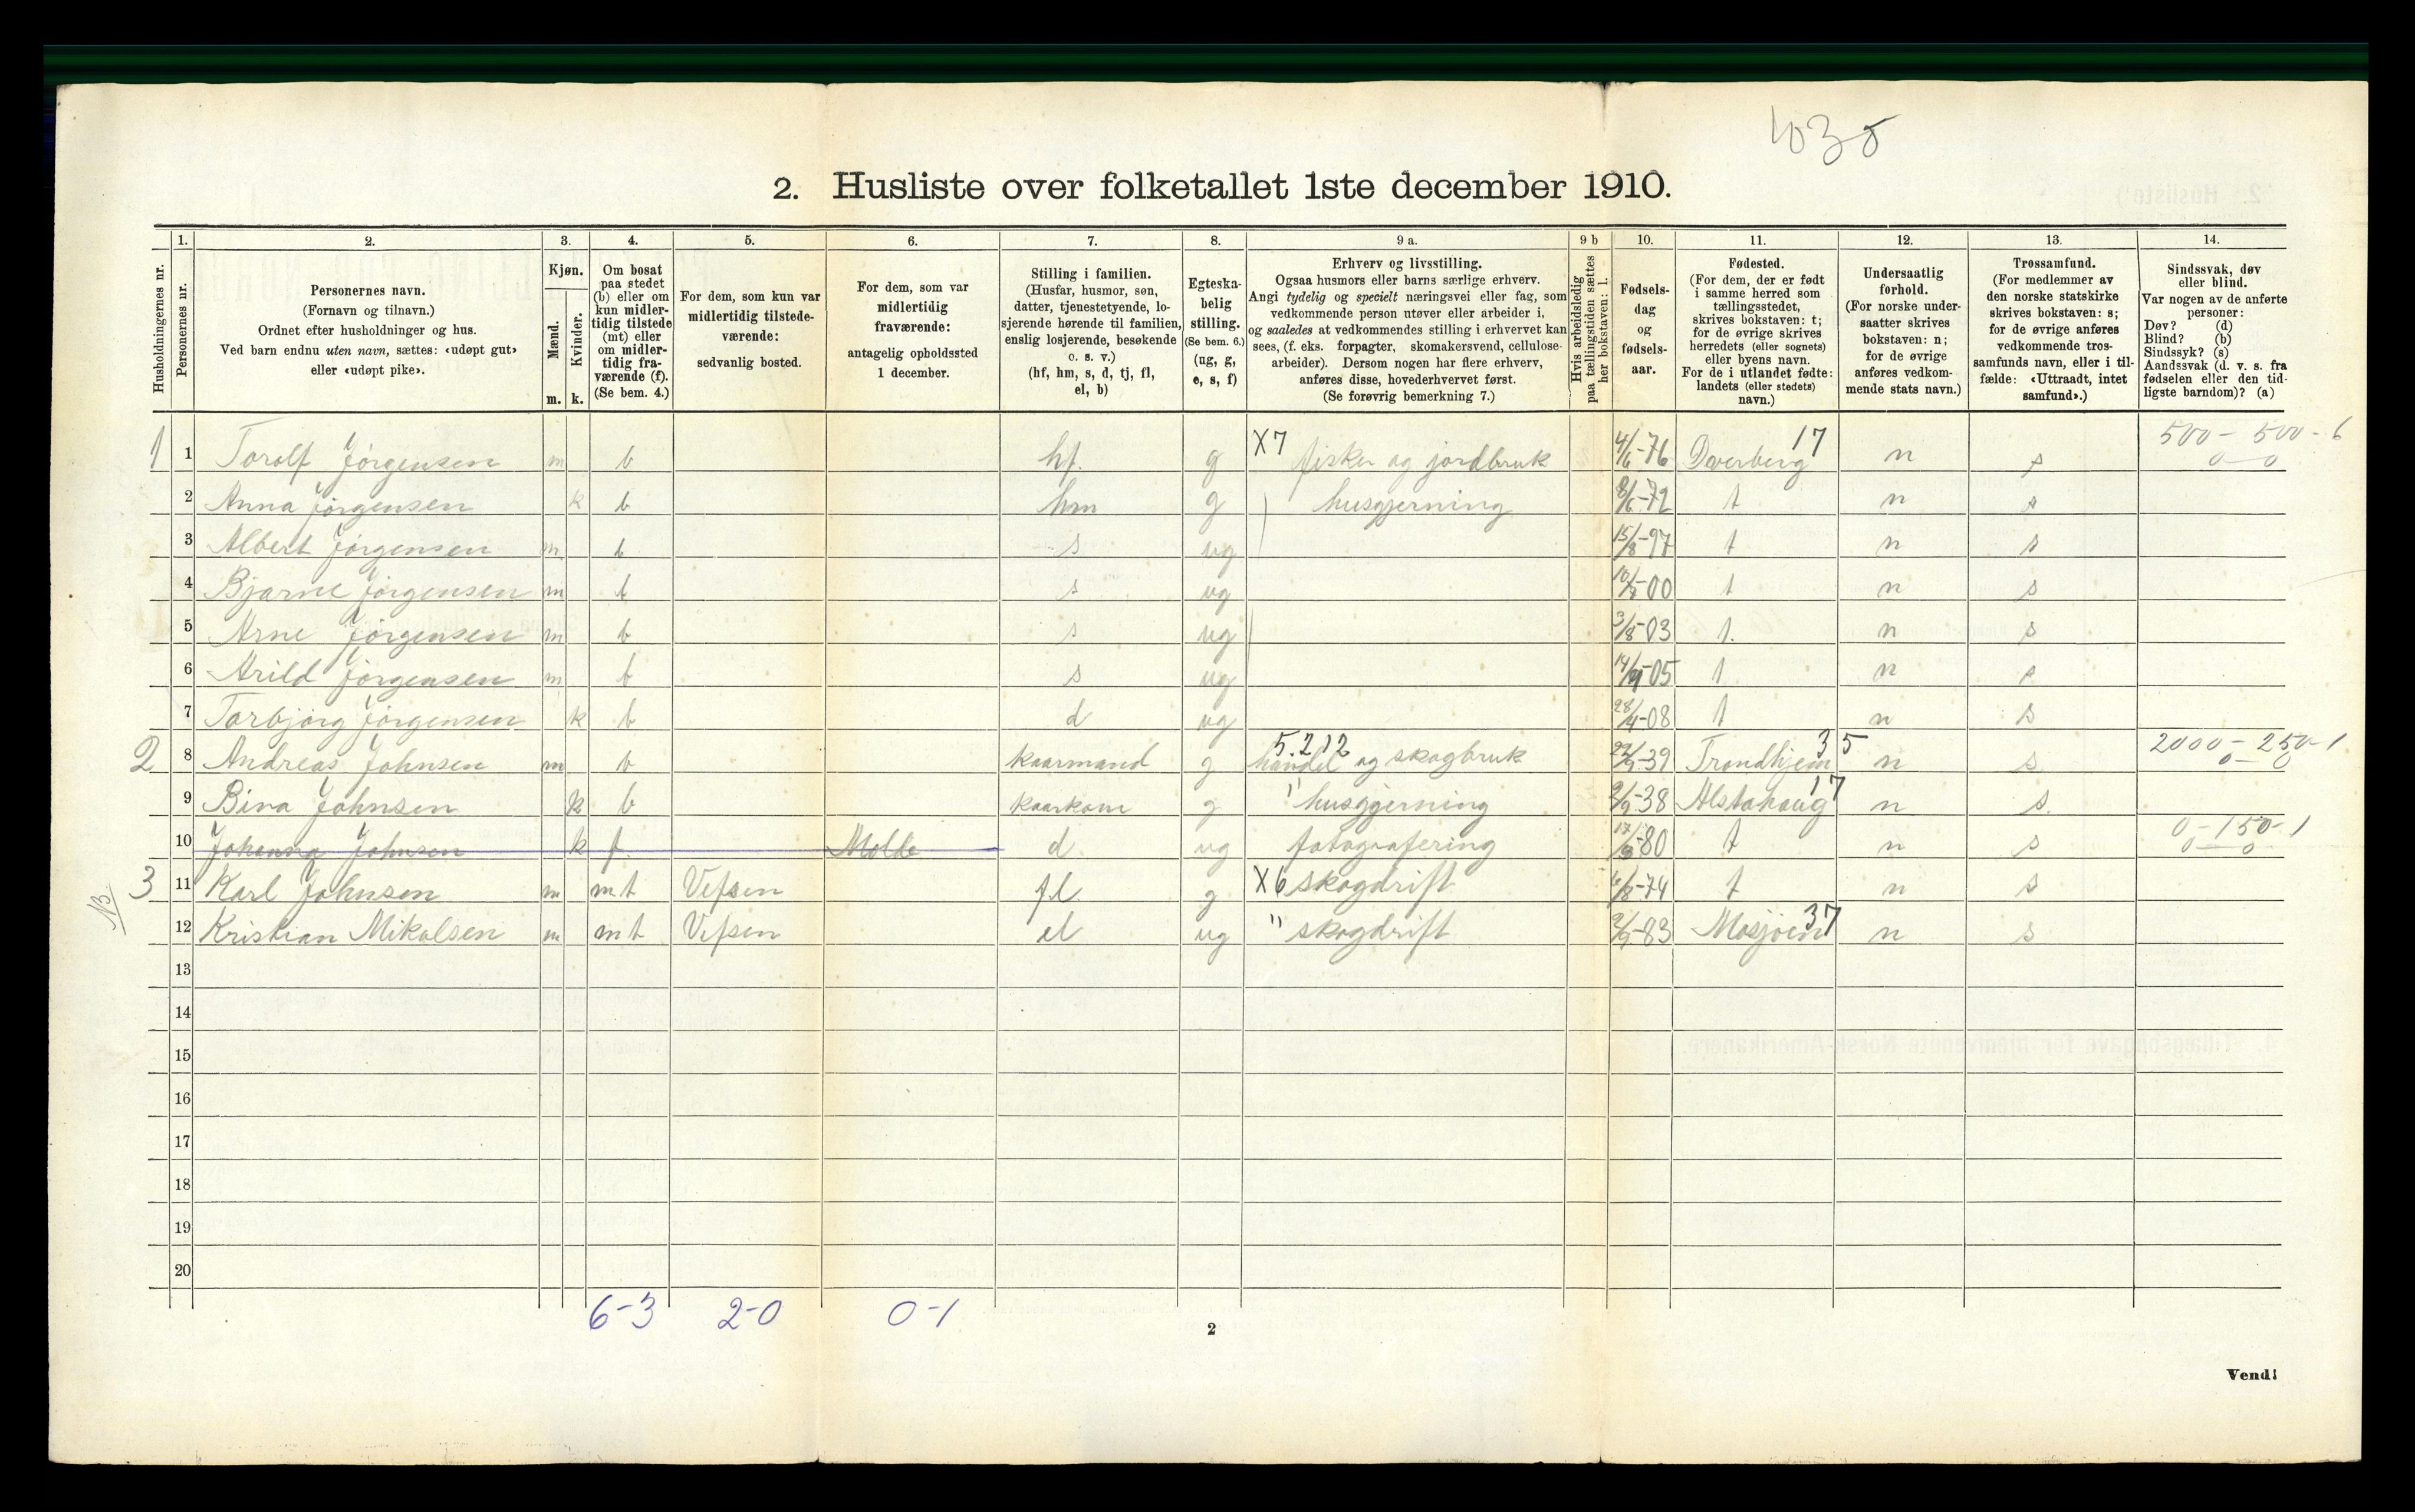 1035
2. Husliste over folketallet 1ste december 1910.
Husholdningernes nr.
1. Personernes nr.
2. Personernes navn. (Fornavn og tilnavn.) Ordnet efter husholdninger og hus. Ved barn endnu uten navn, sættes: «udøpt gut» eller «udøpt pike».
3. Kjøn. Mænd. m. Kvinder. k.
4. Om bosat paa stedet (b) eller om kun midlertidig tilstede (mt) eller om midlertidig fraværende (f). (Se bem. 4.)
5. For dem, som kun var midlertidig tilstedeværende: sedvanlig bosted.
6. For dem, som var midlertidig fraværende: antagelig opholdssted 1 december.
7. Stilling i familien. (Husfar, husmor, søn, datter, tjenestetyende, losjerende hørende til familien, enslig losjerende, besøkende o. s. v.) (hf, hm, s, d, tj, fl, el, b)
8. Egteskabelig stilling. (Se bem. 6.) (ug, g, e, s, f)
9 a. Erhverv og livsstilling. Ogsaa husmors eller barns særlige erhverv. Angi tydelig og specielt næringsvei eller fag, som vedkommende person utøver eller arbeider i, og saaledes at vedkommendes stilling i erhvervet kan sees, (f. eks. forpagter, skomakersvend, cellulosearbeider). Dersom nogen har flere erhverv, anføres disse, hovederhvervet først. (Se forøvrig bemerkning 7.)
9 b Hvis arbeidsledig paa tællingstiden sættes her bokstaven: l.
10. Fødselsdag og fødselsaar.
11. Fødested. (For dem, der er født i samme herred som tællingsstedet, skrives bokstaven: t; for de øvrige skrives herredets (eller sognets) eller byens navn. For de i utlandet fødte: landets (eller stedets) navn.)
12. Undersaatlig forhold. (For norske undersaatter skrives bokstaven: n; for de øvrige anføres vedkommende stats navn.)
13. Trossamfund. (For medlemmer av den norske statskirke skrives bokstaven: s; for de øvrige anføres vedkommende trossamfunds navn, eller i tilfælde: «Uttraadt, intet samfund».)
14. Sindssvak, døv eller blind. Var nogen av de anførte personer: Døv? (d) Blind? (b) Sindssyk? (s) Aandssvak (d. v. s. fra fødselen eller den tidligste barndom)? (a)
1 1 Torolf Jörgensen m b hf. g X7 fisker og jordbruk 4/6-76 Dverberg 17 n s 500 - 500 - 6 0 - 0
2 Anna Jörgensen k b hm g husgjerning 8/6-72 t n s
3 Albert Jörgensen m b s ug 15/8-97 t n s
4 Bjarne Jörgensen m b s ug t n s
5 Arne Jörgensen m b s ug 3/8-03 t. n s
6 Arild Jörgensen m b s ug t n s
7 Torbjörg Jörgensen k b d ug 28/4-08 t n s
2 8 Andreas Johnsen m b kaarmand g 5.212 handel og skogbruk Trondhjem 35 n s 2000 - 250 - 1 0 - 0
9 Bina Johnsen k b kaarkone g " husgjerning 9/9-38 Alstahaug 17 n s.
10 Johanna Johnsen k f. Molde d ug fotografering t n s 0 - 150 - 1 0 - 0
NB 3 11 Karl Johnsen m mt Vefsen fl g X6 skogdrift t n s
12 Kristian Mikalsen m mt Vefsen el ug " skogdrift Mosjöen 37 n s
13
14
15
16
17
18
19
20
6-3 2-0 0-1
2
Vend!